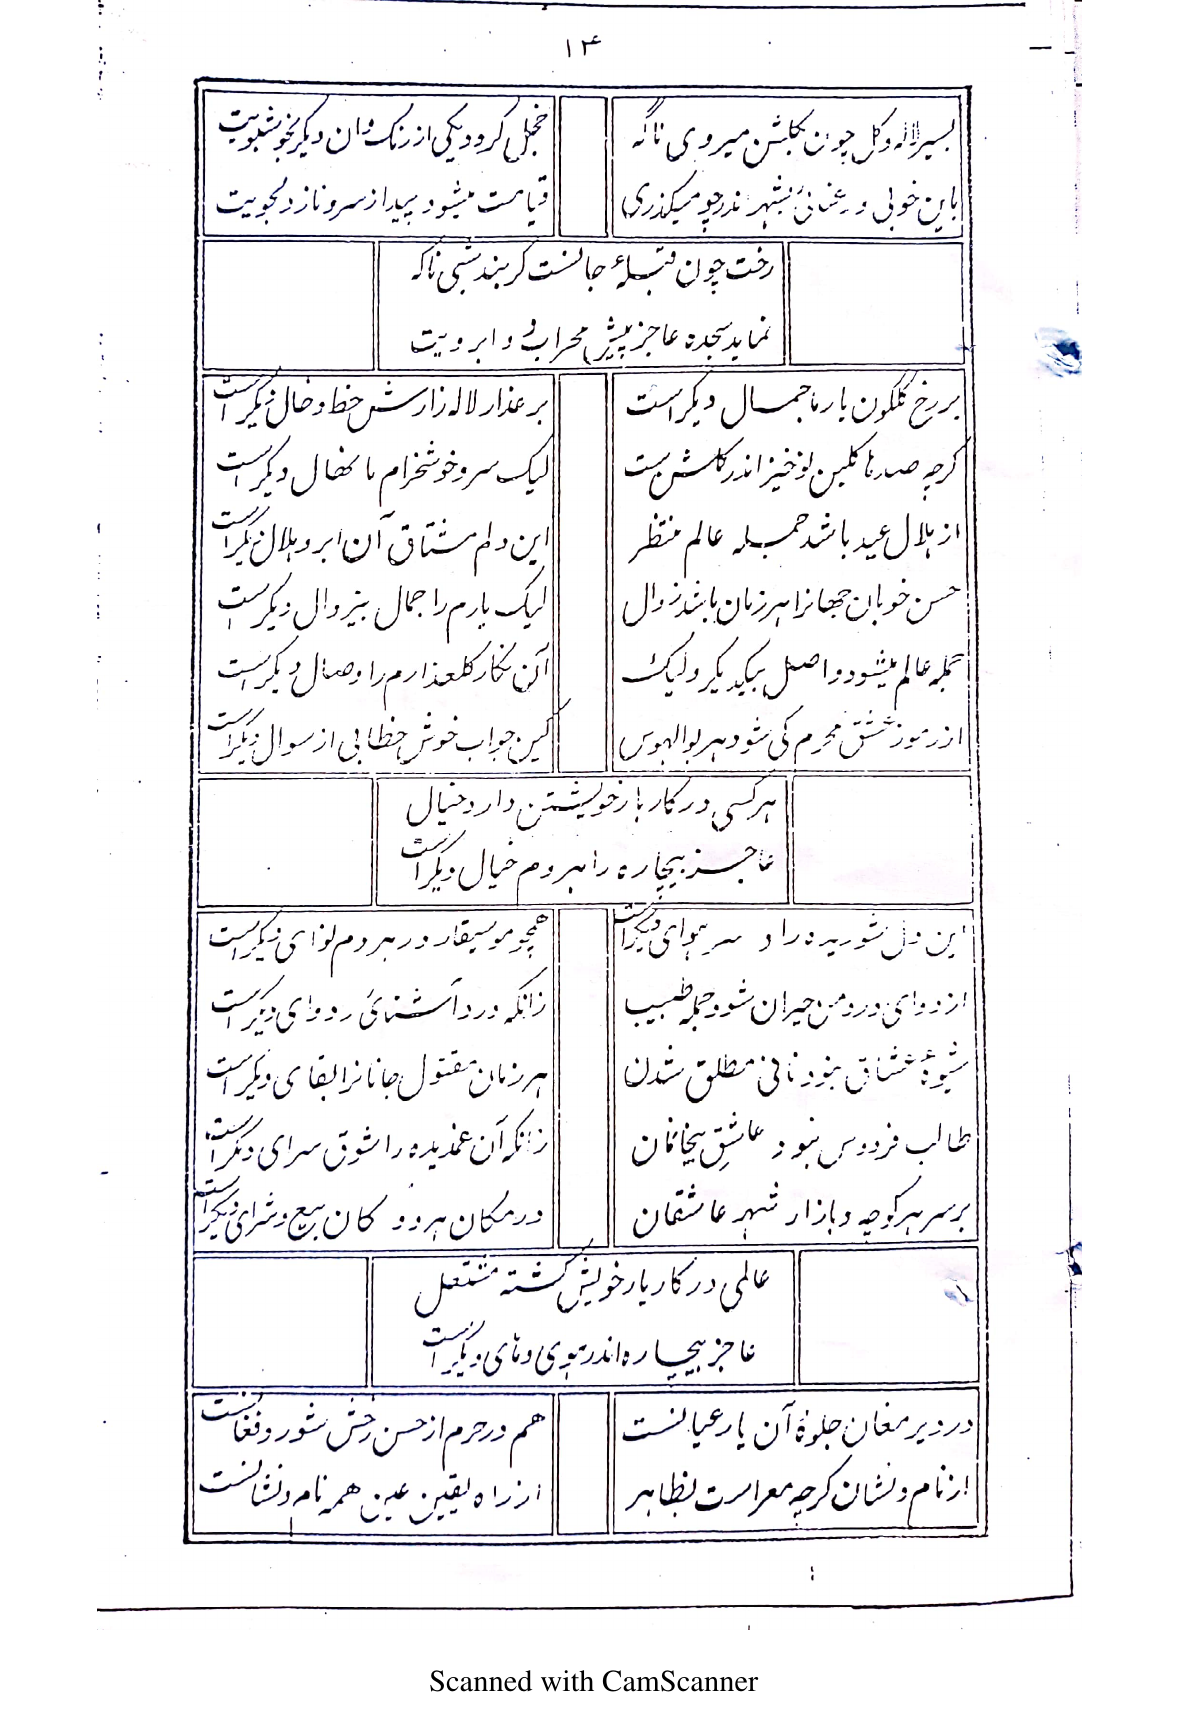 ۱۴
بسیر لاله و کل چون بکلشن میروی ناکه
خجل کردد یکی از رنک و ان دیکر بخوشبویت
باین خوبی و رعنائی بشهر اندر چو میکذری
قیامت میشود پیدا از سرو ناز دلجویت
رخت چون قبلهٔ جانست کر بیند شبی ناکه
نماید سجده عاجز پیش محراب و ابرویت
بر رخ کلکون یار ما جمال دیکر است
بر عذار لاله زارش خط و خال دیکر است
کرچه صدها کلبن نوخیز اندر کلشن است
لیک سرو خوشخرام ما نهال دیکر است
از هلال عید باشد جمله عالم منتظر
این دلم مشتاق آن ابرو هلال دیکر است
حسن خوبان جهانرا هر زمان باشد زوال
لیک یارم را جمال بیزوال دیکر است
جمله عالم میشود واصل بیکدیکر ولیک
آن نکار کلعذارم را وصال دیکر است
از رموز عشق محرم کی شود هر بوالهوس
کین جواب خوش خطابی از سوال دیکر است
هر کسی در کار بار خویشتن دارد خیال
عاجز بیچاره را هر دم خیال دیکر است
این دل شوریده را در سر هوای دیکر است
همچو موسیقار در هر دم نوای دیکر است
از دوای درد من حیران شود جمله طبیب
زانکه درد آشنائی را دوای دیکر است
شیوهٔ عشاق نبود فانی مطلق شدن
هر زمان مقتول جانانرا بقای دیکر است
طالب فردوس نبود عاشق بیخانمان
زانکه آن غمدیده را شوق سرای دیکر است
بر سر هر کوچه و بازار شهر عاشقان
در مکان هر دو کان بیع و شرای دیکر است
عالمی در کار یار خویش کشته مشتعل
عاجز بیچاره اندر هوی و های دیکر است
در دیر مغان جلوهٔ آن یار عیانست
هم در حرم از حسن رخش شور و فغانست
از نام و نشان کرچه معراست بظاهر
از راه یقین عین همه نام و نشانست
Scanned with CamScanner